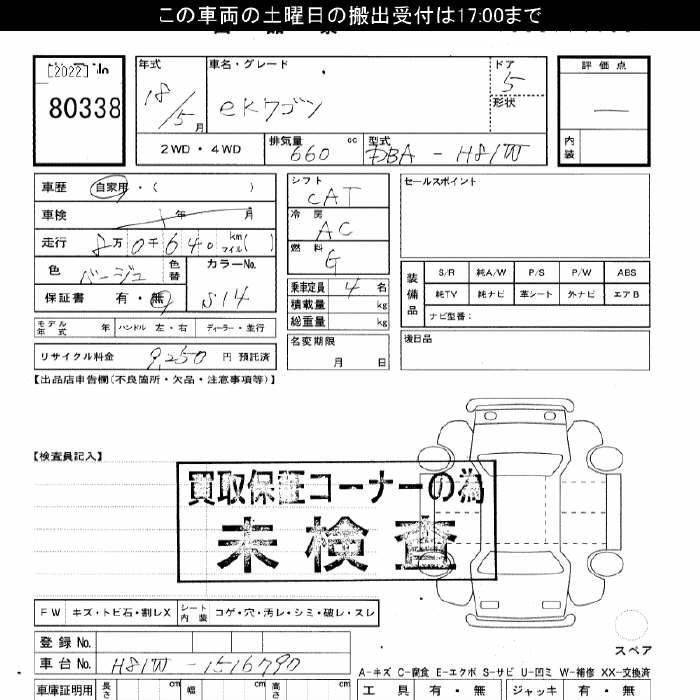 この車両の土曜日の搬出受付は17:00まで
[2022] No
80338
年式 18/5月
車名・グレード eKワゴン
ドア 5
形状
評価点 —
内装
2WD・4WD
排気量 660 cc
型式 DBA - H81W
車歴 自家用・( )
車検 年 月
走行 8万0千640 km マイル( )
色 ベージュ 色替
カラーNo. S14
保証書 有・無
モデル年式 年
ハンドル 左・右
ディーラー・並行
リサイクル料金 9,250 円 預託済
シフト CAT
冷房 AC
燃料 G
乗車定員 4 名
積載量 kg
総重量 kg
名変期限 月 日
セールスポイント
装備品
S/R 純A/W P/S P/W ABS
純TV 純ナビ 革シート 外ナビ エアB
ナビ型番:
後日品
【出品店申告欄(不良箇所・欠品・注意事項等)】
【検査員記入】
買取保証コーナーの為
未検査
FW キズ・トビ石・割レX
シート内装 コゲ・穴・汚レ・シミ・破レ・スレ
スペア
登録 No.
車台 No. H81W - 1516790
A-キズ C-腐食 E-エクボ S-サビ U-凹ミ W-補修 XX-交換済
車庫証明用 長さ cm 幅 cm 高さ cm
工具 有・無 ジャッキ 有・無